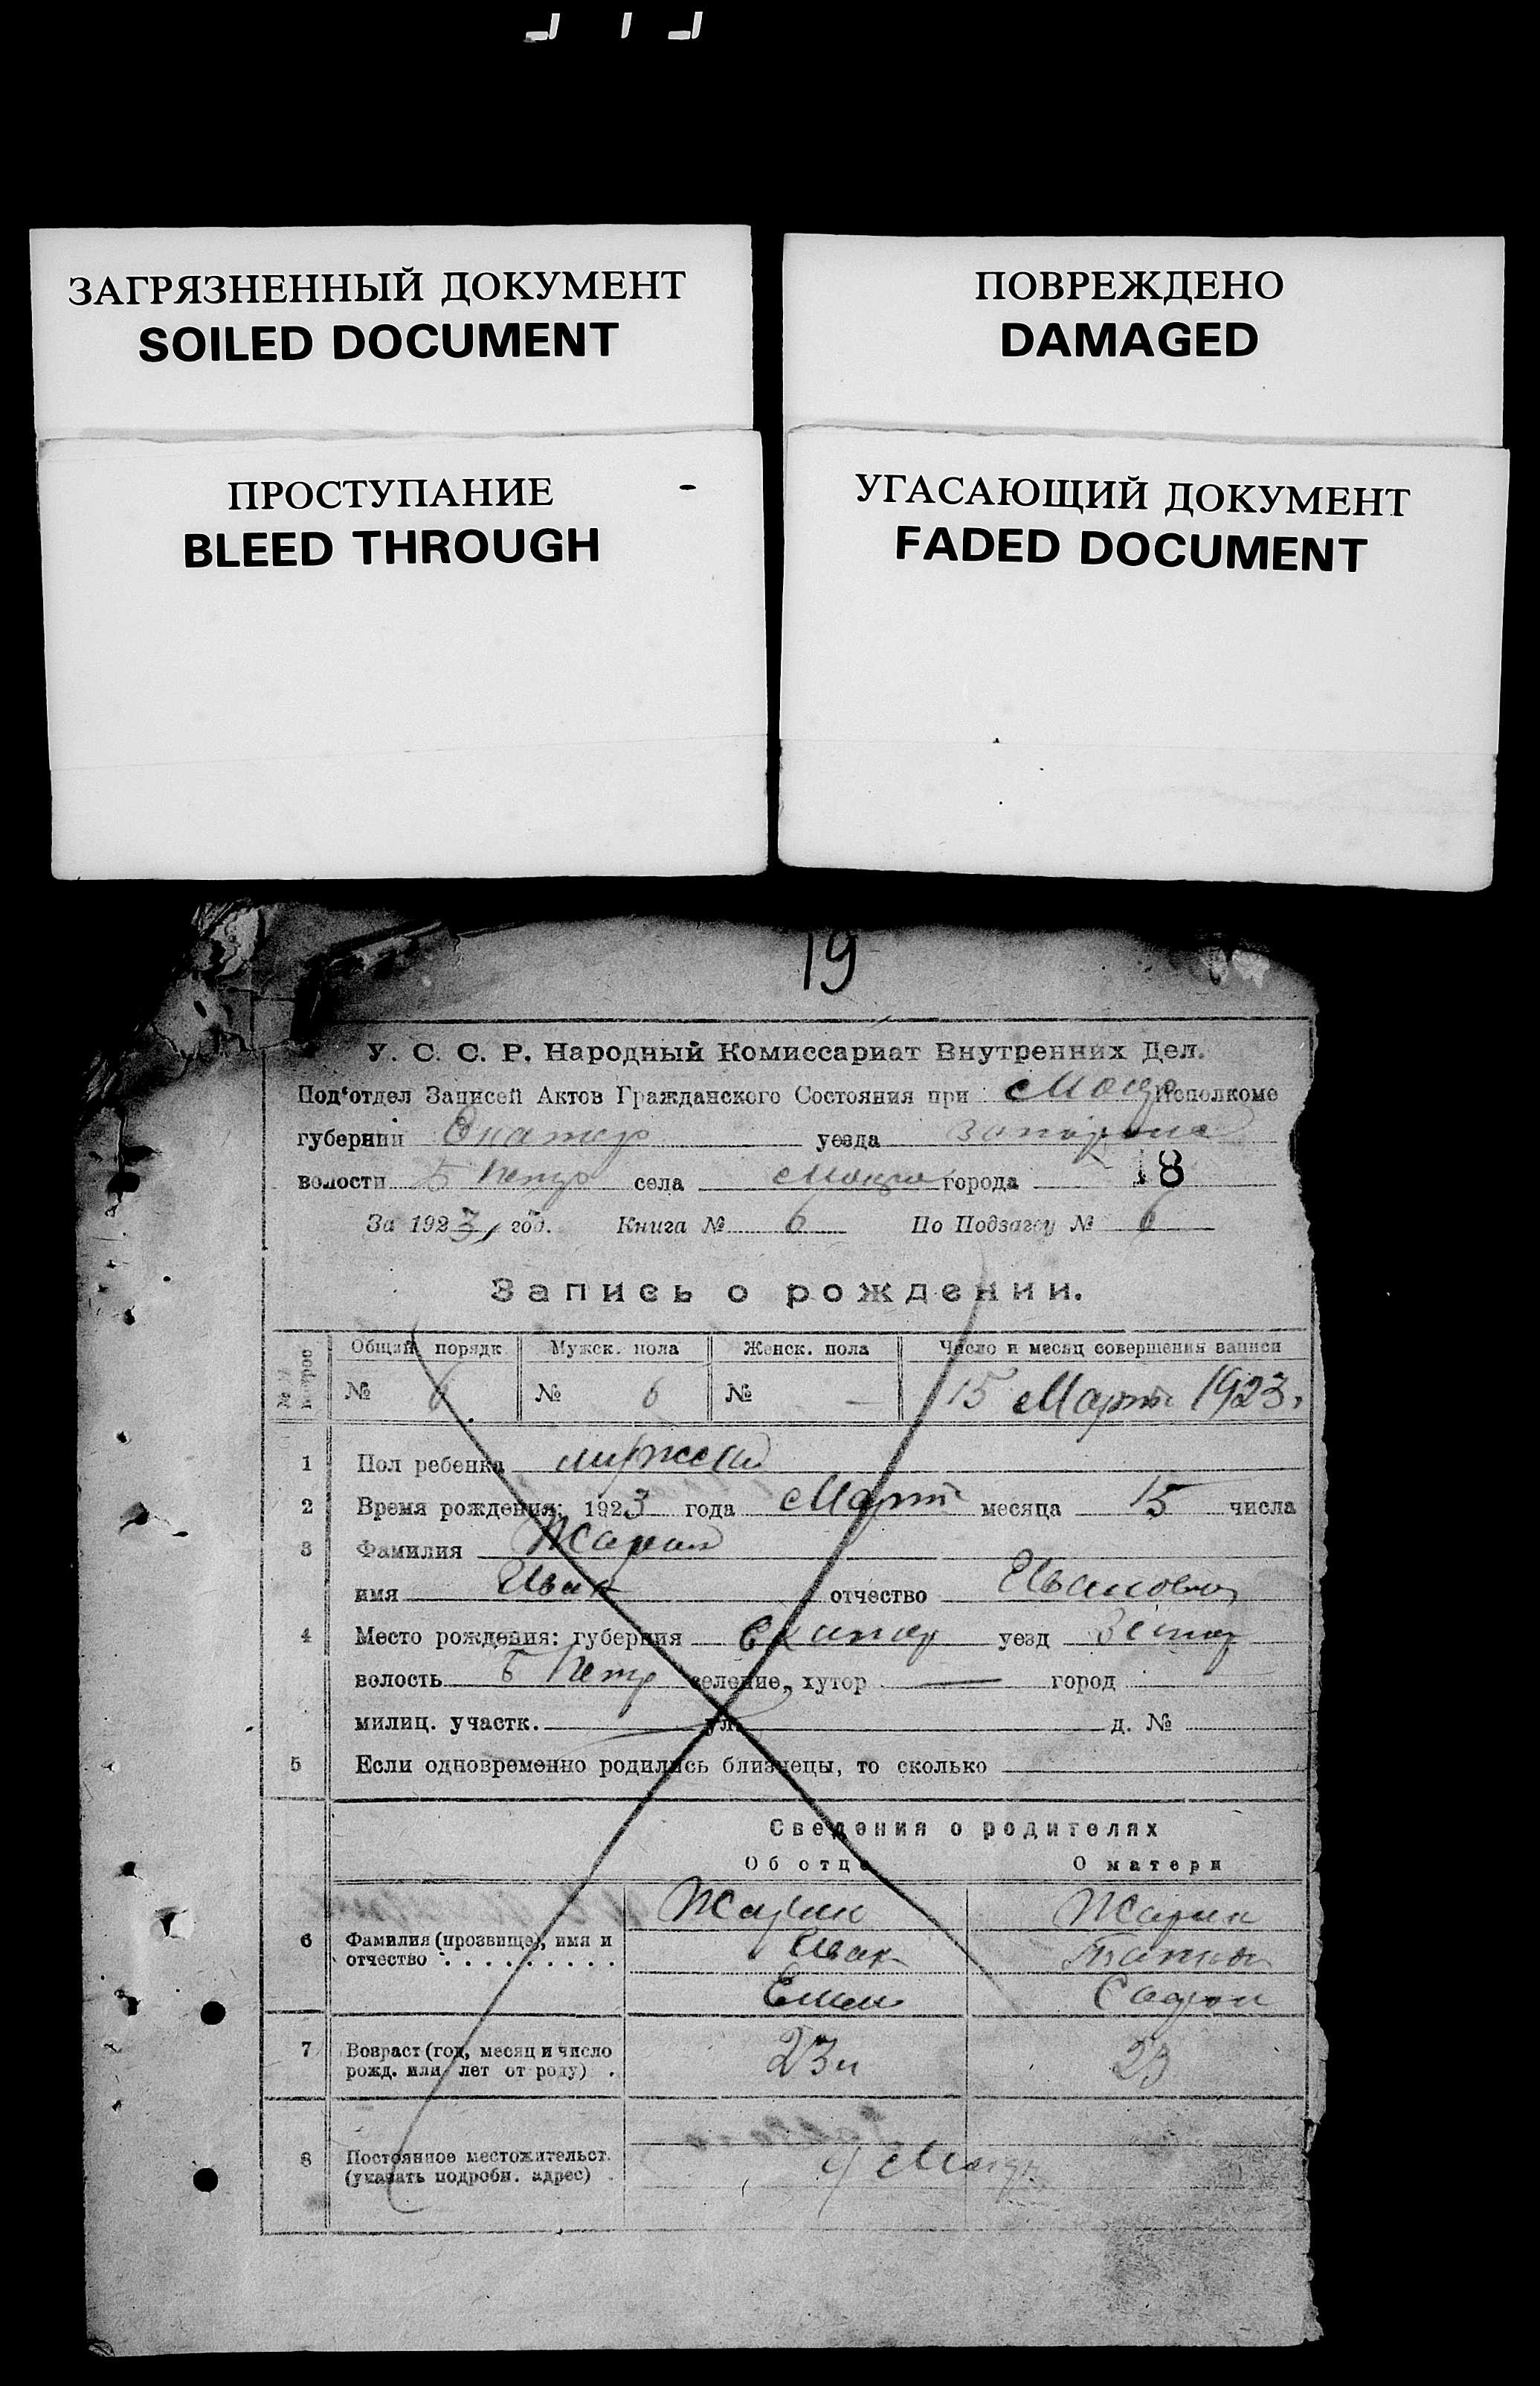 ЗАГРЯЗНЕННЫЙ ДОКУМЕНТ
SOILED DOCUMENT
ПОВРЕЖДЕНО
DAMAGED
ПРОСТУПАНИЕ
BLEED THROUGH
УГАСАЮЩИЙ ДОКУМЕНТ
FADED DOCUMENT
19
У. С. С. Р. Народный Комиссариат Внутренних Дел.
Под‘отдел Записей Актов Гражданского Состояния при Исполкоме
губернии уезда
волости села города 18
За 1923 год. Книга № 6 По Подзагсу № 6
Запись о рождении.
Общий порядк. Мужск. пола Женск. пола Число и месяц совершения записи
№ 6 № 6 № — 15 Март 1923.
1 Пол ребенка мужской
2 Время рождения: 1923 года Март месяца 15 числа
3 Фамилия
имя Иван отчество Иванович
4 Место рождения: губерния Екатер уезд
волость Б Петр селение, хутор — город
милиц. участк. ул. д. №
5 Если одновременно родились близнецы, то сколько
Сведения о родителях
Об отце О матери
6 Фамилия (прозвище), имя и
отчество
Иван
7 Возраст (год, месяц и число
рожд. или лет от роду) . 23 23
8 Постоянное местожительст.
(указать подробн. адрес) .